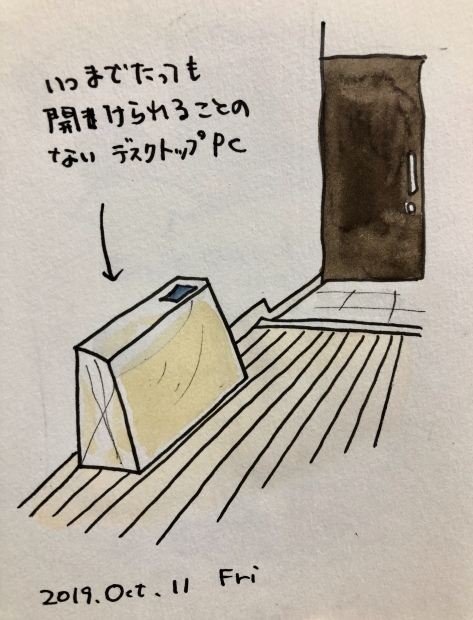 いつまでたっても
開けられることの
ない デスクトップPC
2019.Oct.11 Fri